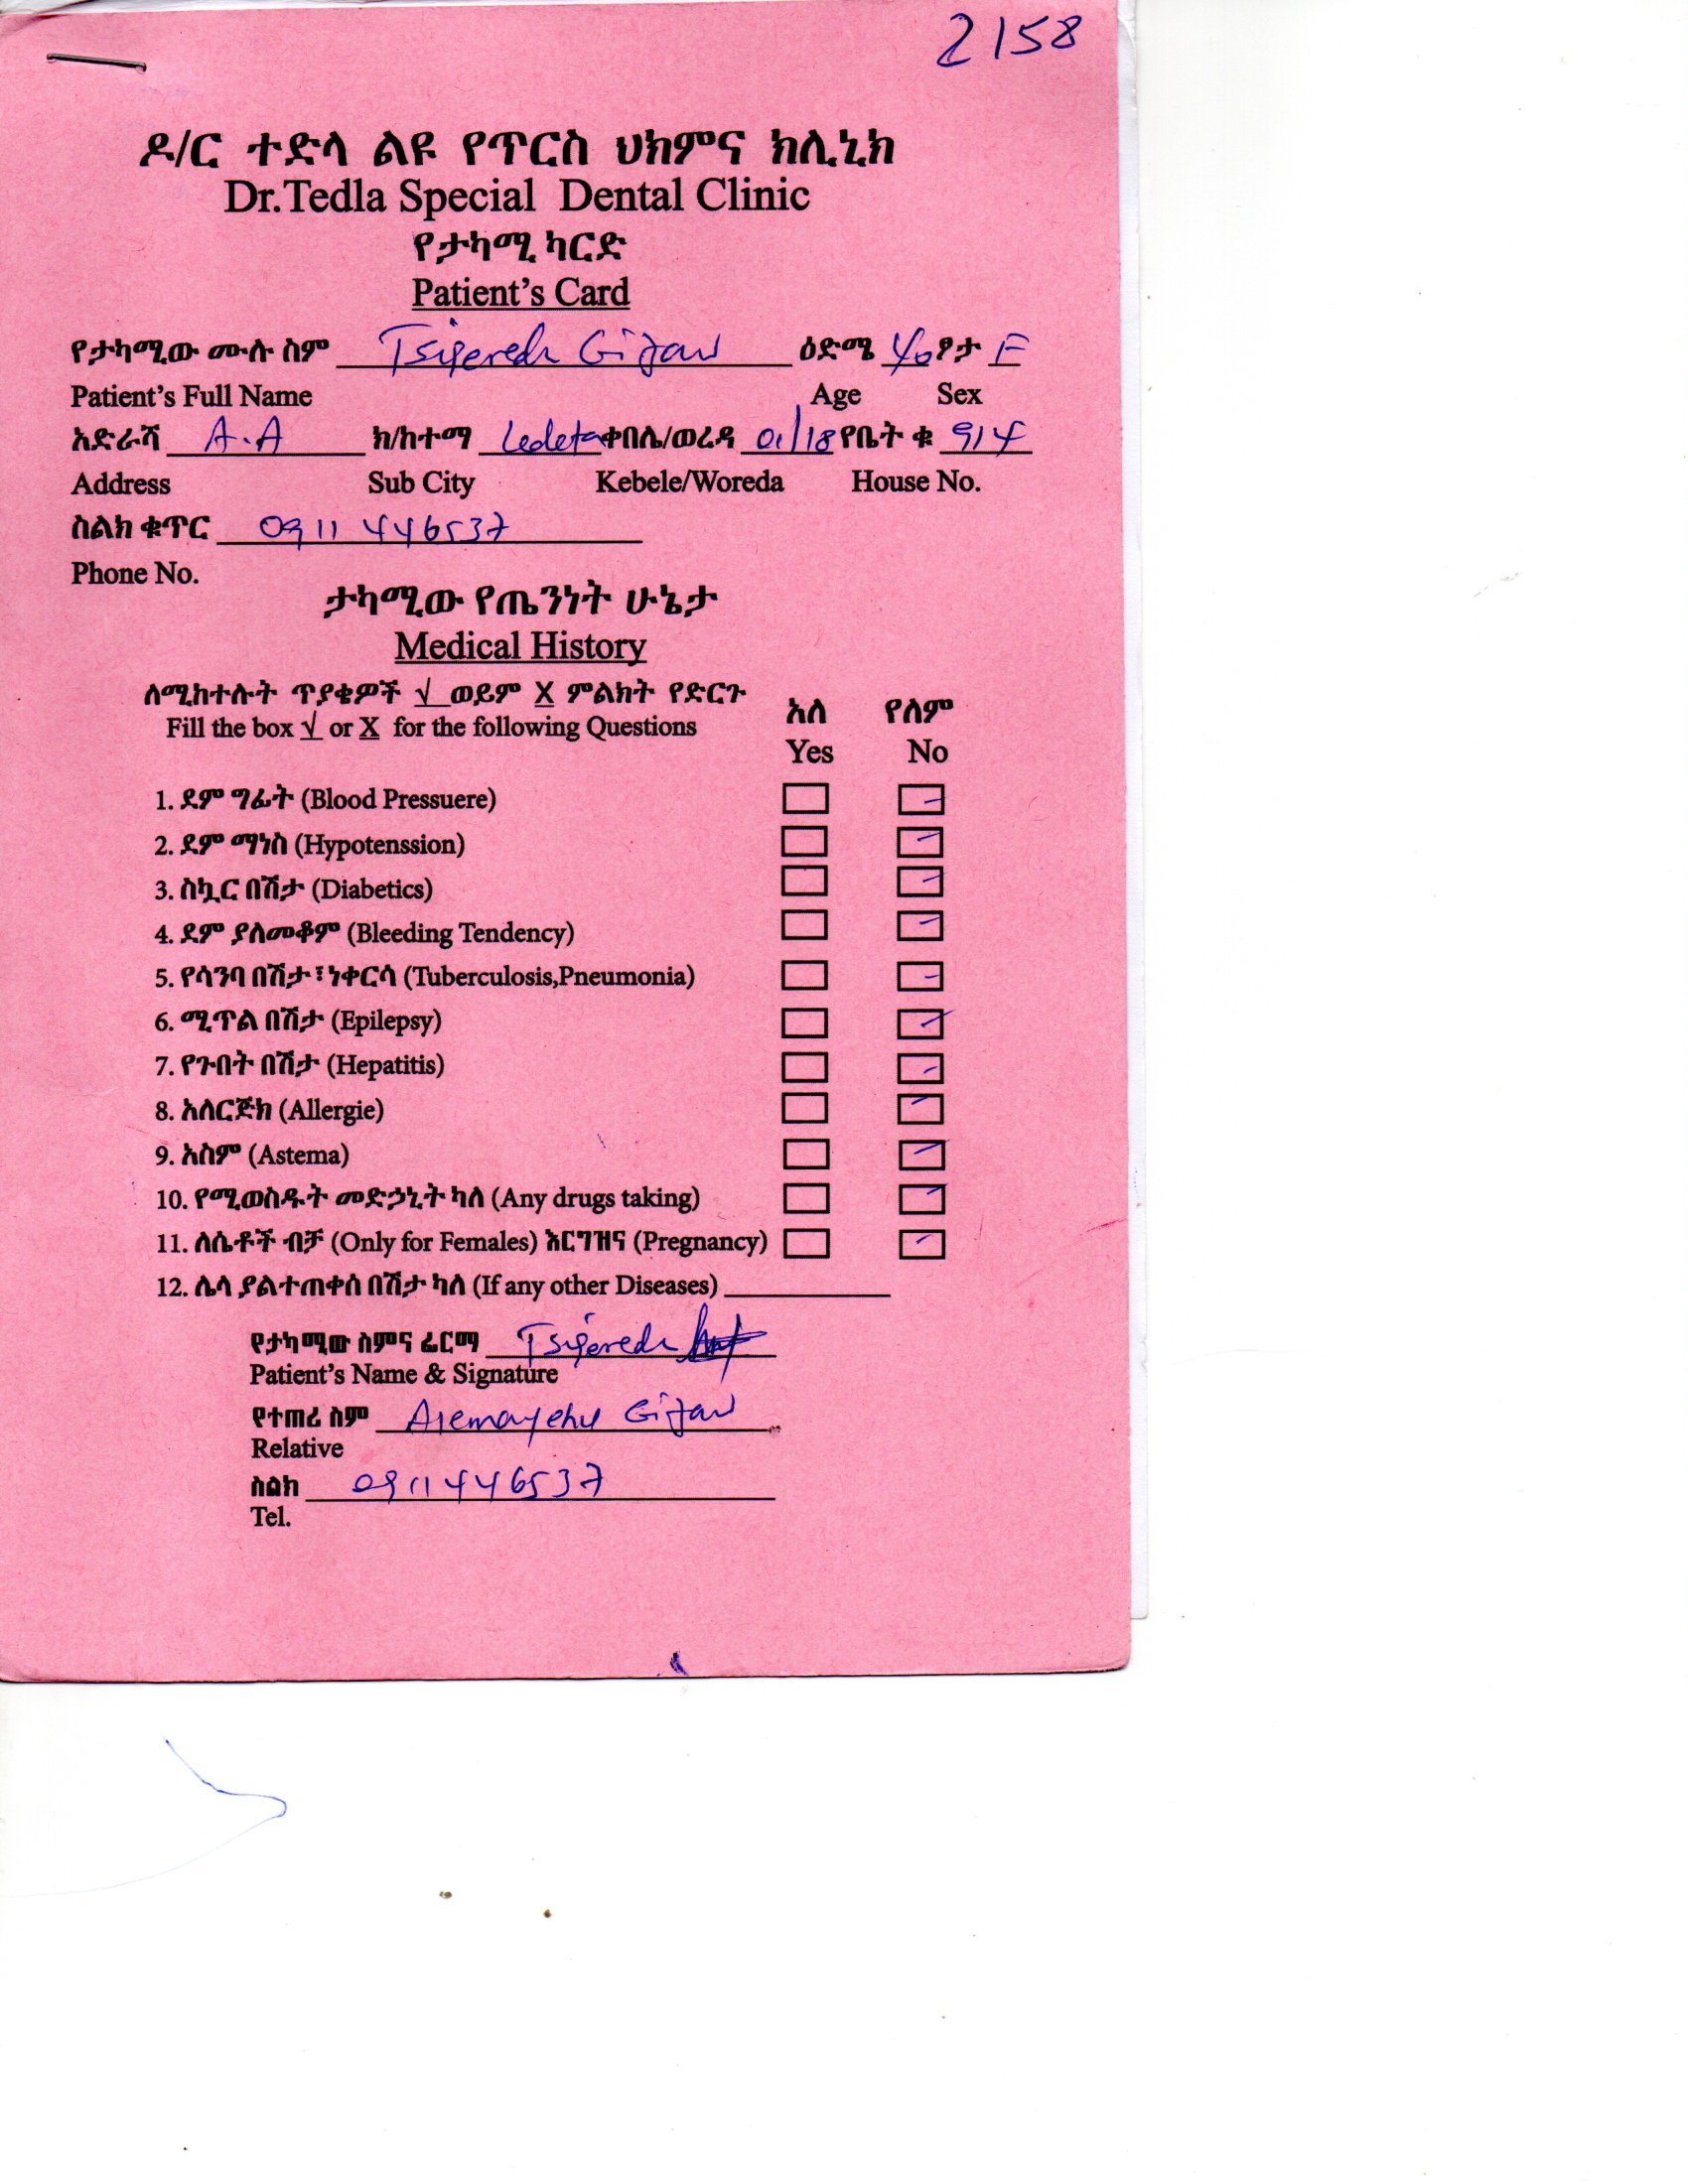 2158
ዶ/ር ተድላ ልዩ የጥርስ ህክምና ክሊኒክ
Dr.Tedla Special Dental Clinic
የታካሚ ካርድ
Patient's Card
የታካሚው ሙሉ ስም Tsigereda Gizaw ዕድሜ 40 ፆታ F
Patient's Full Name Age Sex
አድራሻ A.A ክ/ከተማ Ledeta ቀበሌ/ወረዳ 01/18 የቤት ቁ 914
Address Sub City Kebele/Woreda House No.
ስልክ ቁጥር 0911 446537
Phone No.
ታካሚው የጤንነት ሁኔታ
Medical History
ለሚከተሉት ጥያቄዎች √ ወይም X ምልክት የድርጉ
Fill the box √ or X for the following Questions
አለ የለም
Yes No
1. ደም ግፊት (Blood Pressuere)
2. ደም ማነስ (Hypotenssion)
3. ስኳር በሽታ (Diabetics)
4. ደም ያለመቆም (Bleeding Tendency)
5. የሳንባ በሽታ፣ነቀርሳ (Tuberculosis,Pneumonia)
6. ሚጥል በሽታ (Epilepsy)
7. የጉበት በሽታ (Hepatitis)
8. አለርጅክ (Allergie)
9. አስም (Astema)
10. የሚወስዱት መድኃኒት ካለ (Any drugs taking)
11. ለሴቶች ብቻ (Only for Females) እርግዝና (Pregnancy)
12. ሌላ ያልተጠቀሰ በሽታ ካለ (If any other Diseases)
የታካሚው ስምና ፊርማ Tsigereda
Patient's Name & Signature
የተጠሪ ስም Alemayehu Gizaw
Relative
ስልክ 0911446537
Tel.